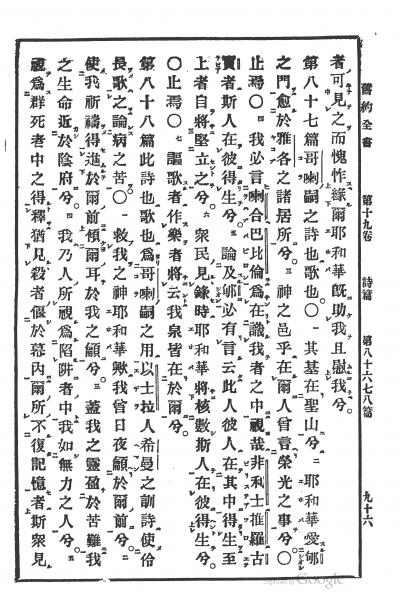 舊約全書 第十九卷 詩篇 第八十六七八篇 九十六
者可見之而愧怍緣爾耶和華既助我且慰我兮。
第八十七篇哥喇嗣之詩也歌也〇一其基在聖山兮二耶和華愛郇
之門愈於雅各之諸居所兮。三神之邑乎在爾人曾言榮光之事兮。〇
止焉〇四我必言喇合巴比倫爲在識我者之中視哉非利士推羅古
實者斯人在彼得生兮。五論及郇必有言云此人彼人在其中得生至
上者自將堅立之兮。六衆民見錄時耶和華將核數斯人在彼得生兮。
〇止焉〇七謳歌者作樂者將云我泉皆在於爾兮。
第八十八篇此詩也歌也爲哥喇嗣之用以士拉人希曼之訓詩使伶
長歌之論病之苦〇一救我之神耶和華歟我曾日夜籲於爾前兮。二
使我祈禱得進於爾前傾爾耳於我之籲兮。三蓋我之靈盈於苦難我
之生命近於陰府兮。四我乃人所視爲陷阱者中我如無力之人兮。五
視爲群死者中之得釋猶見殺者偃於幕内爾所不復記憶者斯衆見
Digitized by Google